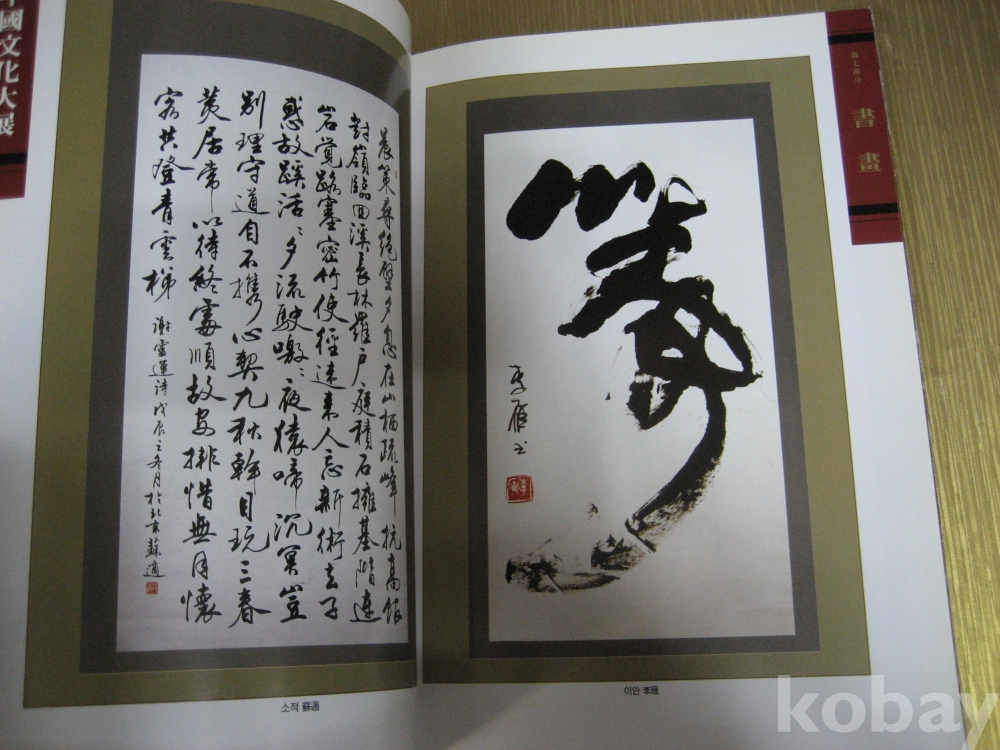 國文化大展
晨策尋绝壁夕息在山栖疏峰抗高館
對嶺臨回溪長林羅戶庭積石擁基階連
岩覺路塞密竹使徑迷來人忘新術去子
惑故蹊活〻夕流駛噭〻夜猿啼沉冥豈
別理守道自不携心契九秋幹目玩三春
荑居常以待終處順故安排惜無同懷
客共登青雲梯
謝靈運詩戊辰之冬月於北京蘇適
소적 蘇適
李雁书
이안 李雁
第七部分
書畫
kobay